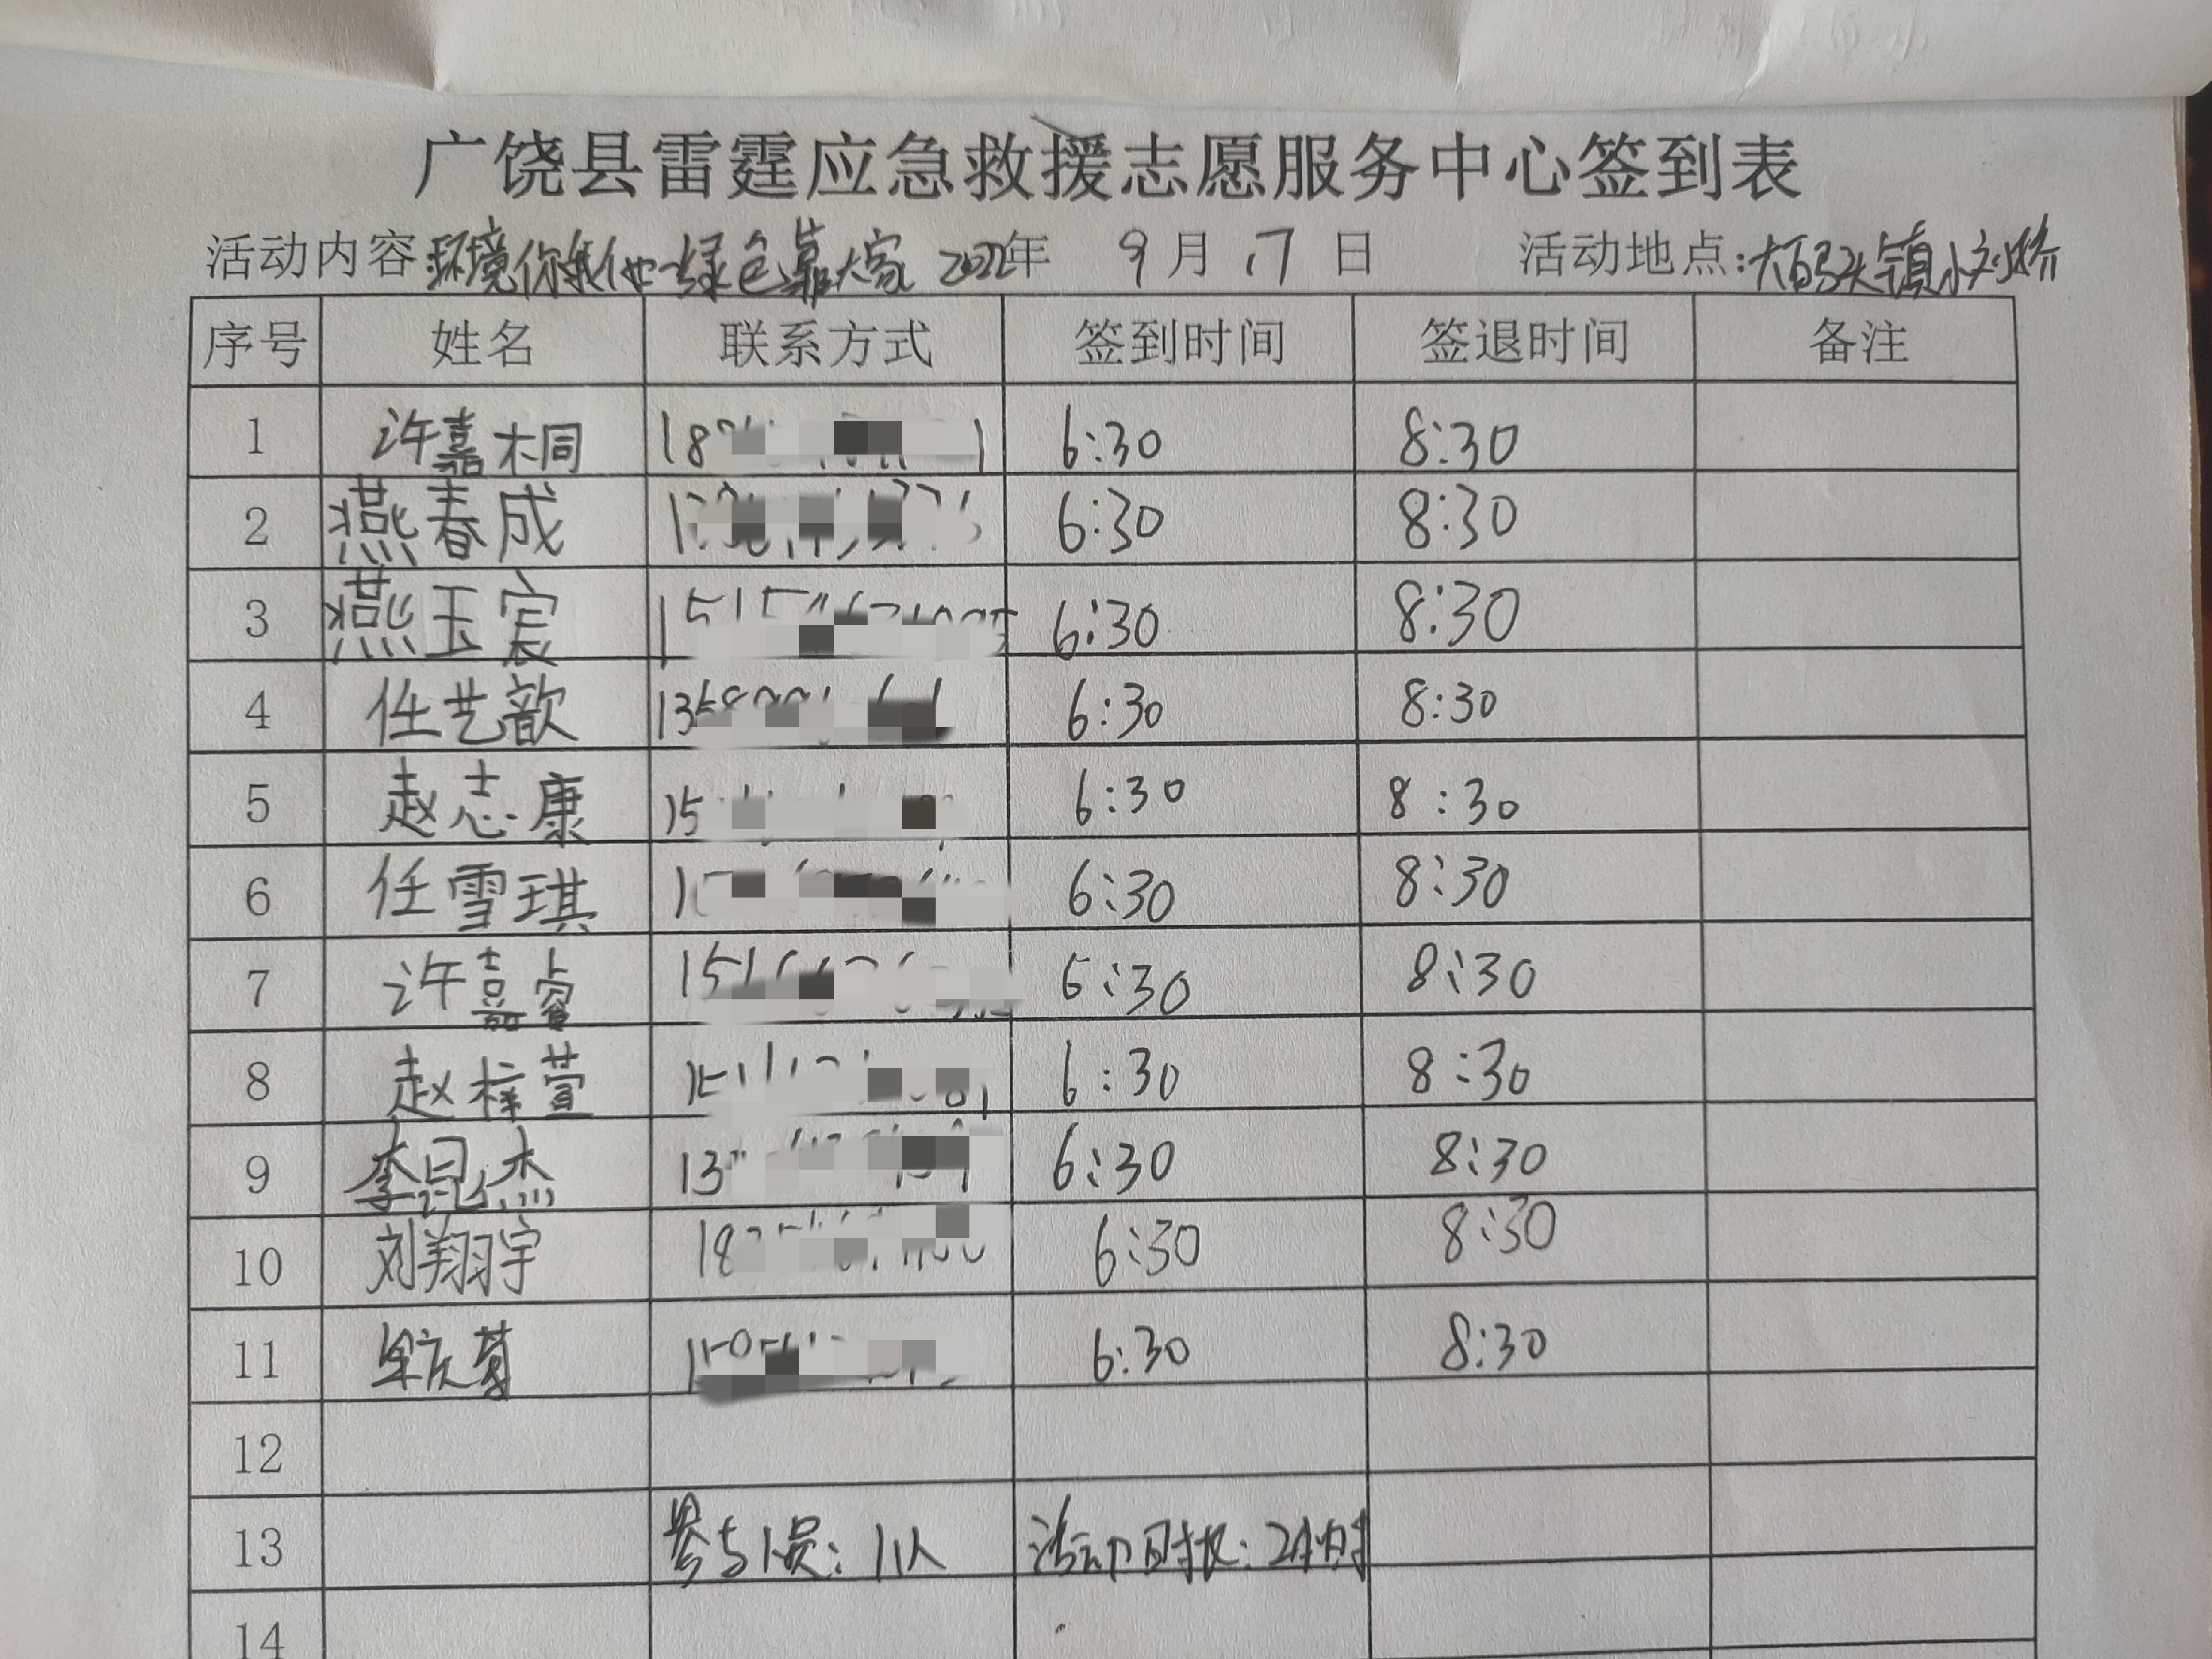 广饶县雷霆应急救援志愿服务中心签到表
活动内容 环境你我他 绿色靠大家 2022年 9月17日 活动地点:大码头镇小刘桥
序号 姓名 联系方式 签到时间 签退时间 备注
1 许嘉桐 18 6:30 8:30
2 燕春成 6:30 8:30
3 燕玉宸 6:30 8:30
4 任艺歆 6:30 8:30
5 赵志康 15 6:30 8:30
6 任雪琪 6:30 8:30
7 许嘉睿 6:30 8:30
8 赵梓萱 6:30 8:30
9 李昆杰 13 6:30 8:30
10 刘翔宇 18 6:30 8:30
11 6:30 8:30
12
13 参与人员:11人 活动时长:2小时
14